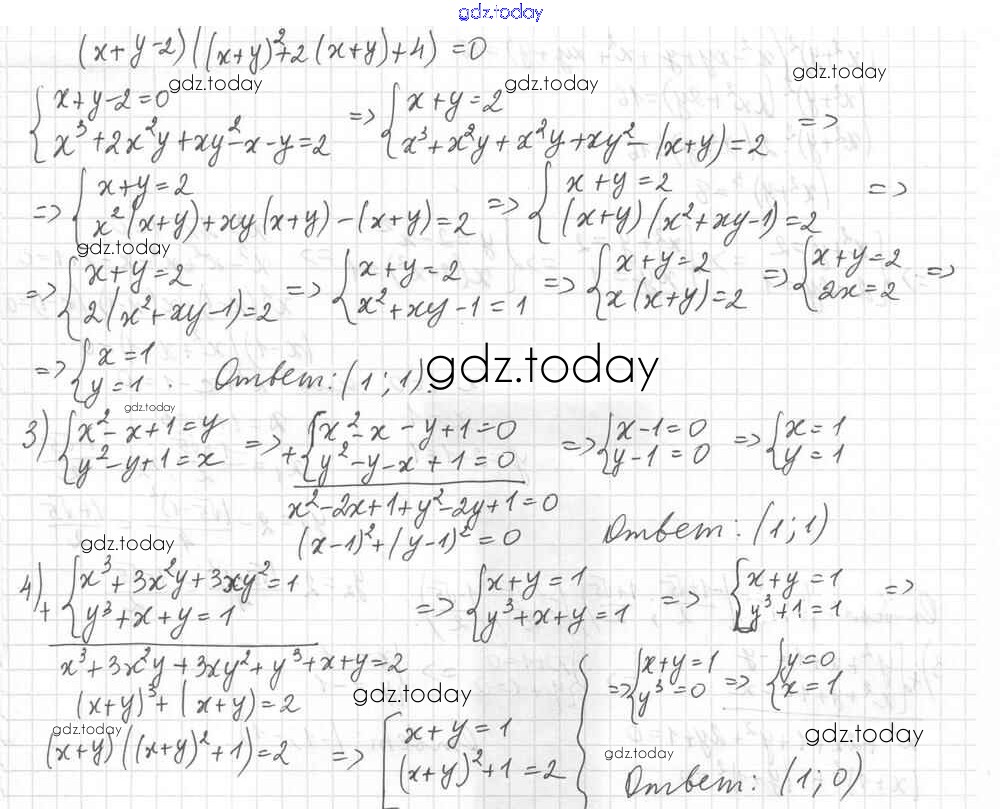 gdz.today
(x+y-2)((x+y)²+2(x+y)+4)=0
gdz.today gdz.today gdz.today
{x+y-2=0 {x³+2x²y+xy²-x-y=2 => {x+y=2 {x³+x²y+x²y+xy²-(x+y)=2 =>
=> {x+y=2 {x²(x+y)+xy(x+y)-(x+y)=2 => {x+y=2 {(x+y)(x²+xy-1)=2 =>
gdz.today
=> {x+y=2 {2(x²+xy-1)=2 => {x+y=2 {x²+xy-1=1 => {x+y=2 {x(x+y)=2 => {x+y=2 {2x=2 =>
=> {x=1 {y=1. Ответ: (1;1).
gdz.today
gdz.today
3) {x²-x+1=y {y²-y+1=x => + {x²-x-y+1=0 {y²-y-x+1=0 => {x-1=0 {y-1=0 => {x=1 {y=1
x²-2x+1+y²-2y+1=0
(x-1)²+(y-1)²=0 Ответ: (1;1)
gdz.today
4) + {x³+3x²y+3xy²=1 {y³+x+y=1 => {x+y=1 {y³+x+y=1 => {x+y=1 {y³+1=1 =>
x³+3x²y+3xy²+y³+x+y=2 => {x+y=1 {y³=0 => {y=0 {x=1
(x+y)³+(x+y)=2
gdz.today
gdz.today gdz.today
(x+y)((x+y)²+1)=2 => [x+y=1 [(x+y)²+1=2
gdz.today
Ответ: (1;0)